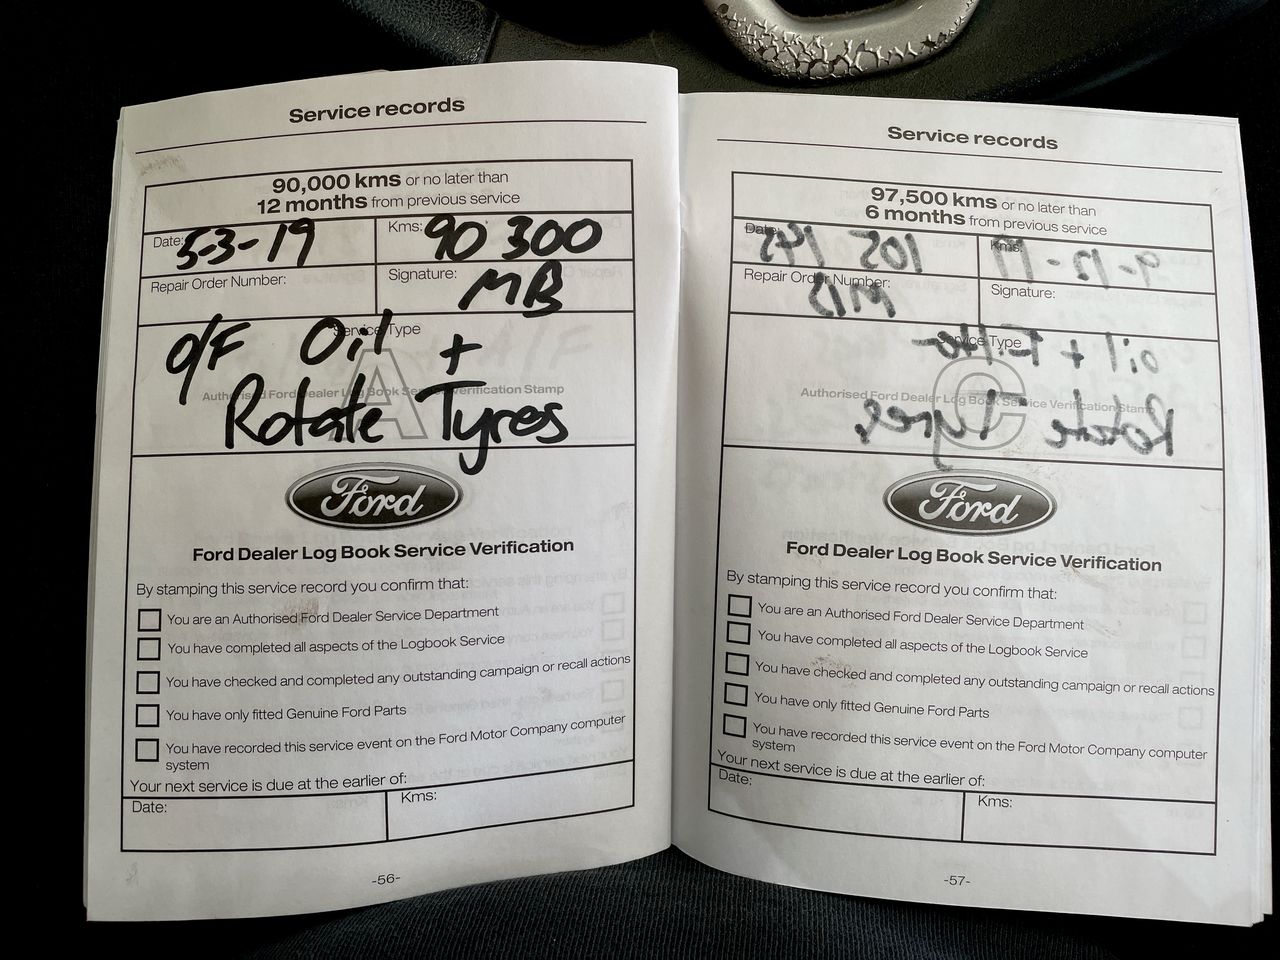 Service records
90,000 kms or no later than
12 months from previous service
Date: 5-3-19
Kms: 90 300
Repair Order Number:
Signature: MB
Service Type
O/F Oil +
A
Authorised Ford Dealer Log Book Service Verification Stamp
Rotate Tyres
Ford
Ford Dealer Log Book Service Verification
By stamping this service record you confirm that:
You are an Authorised Ford Dealer Service Department
You have completed all aspects of the Logbook Service
You have checked and completed any outstanding campaign or recall actions
You have only fitted Genuine Ford Parts
You have recorded this service event on the Ford Motor Company computer
system
Your next service is due at the earlier of:
Date:
Kms:
-56-
Service records
97,500 kms or no later than
6 months from previous service
Date:
Kms:
Repair Order Number:
Signature:
Service Type
C
Authorised Ford Dealer Log Book Service Verification Stamp
Ford
Ford Dealer Log Book Service Verification
By stamping this service record you confirm that:
You are an Authorised Ford Dealer Service Department
You have completed all aspects of the Logbook Service
You have checked and completed any outstanding campaign or recall actions
You have only fitted Genuine Ford Parts
You have recorded this service event on the Ford Motor Company computer
system
Your next service is due at the earlier of:
Date:
Kms:
-57-